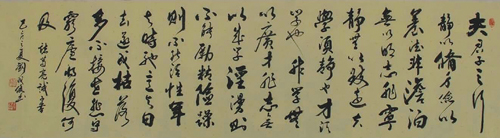 夫君子之行
静以修身俭以
养德非澹泊
无以明志非宁
静无以致远夫
学须静也才须
学也非学无
以广才非志无
以成学淫漫则
不能励精险躁
则不能治性年
与时驰意与日
去遂成枯落
多不接世悲守
穷庐将复何
及 诸葛亮诫子书
之夏